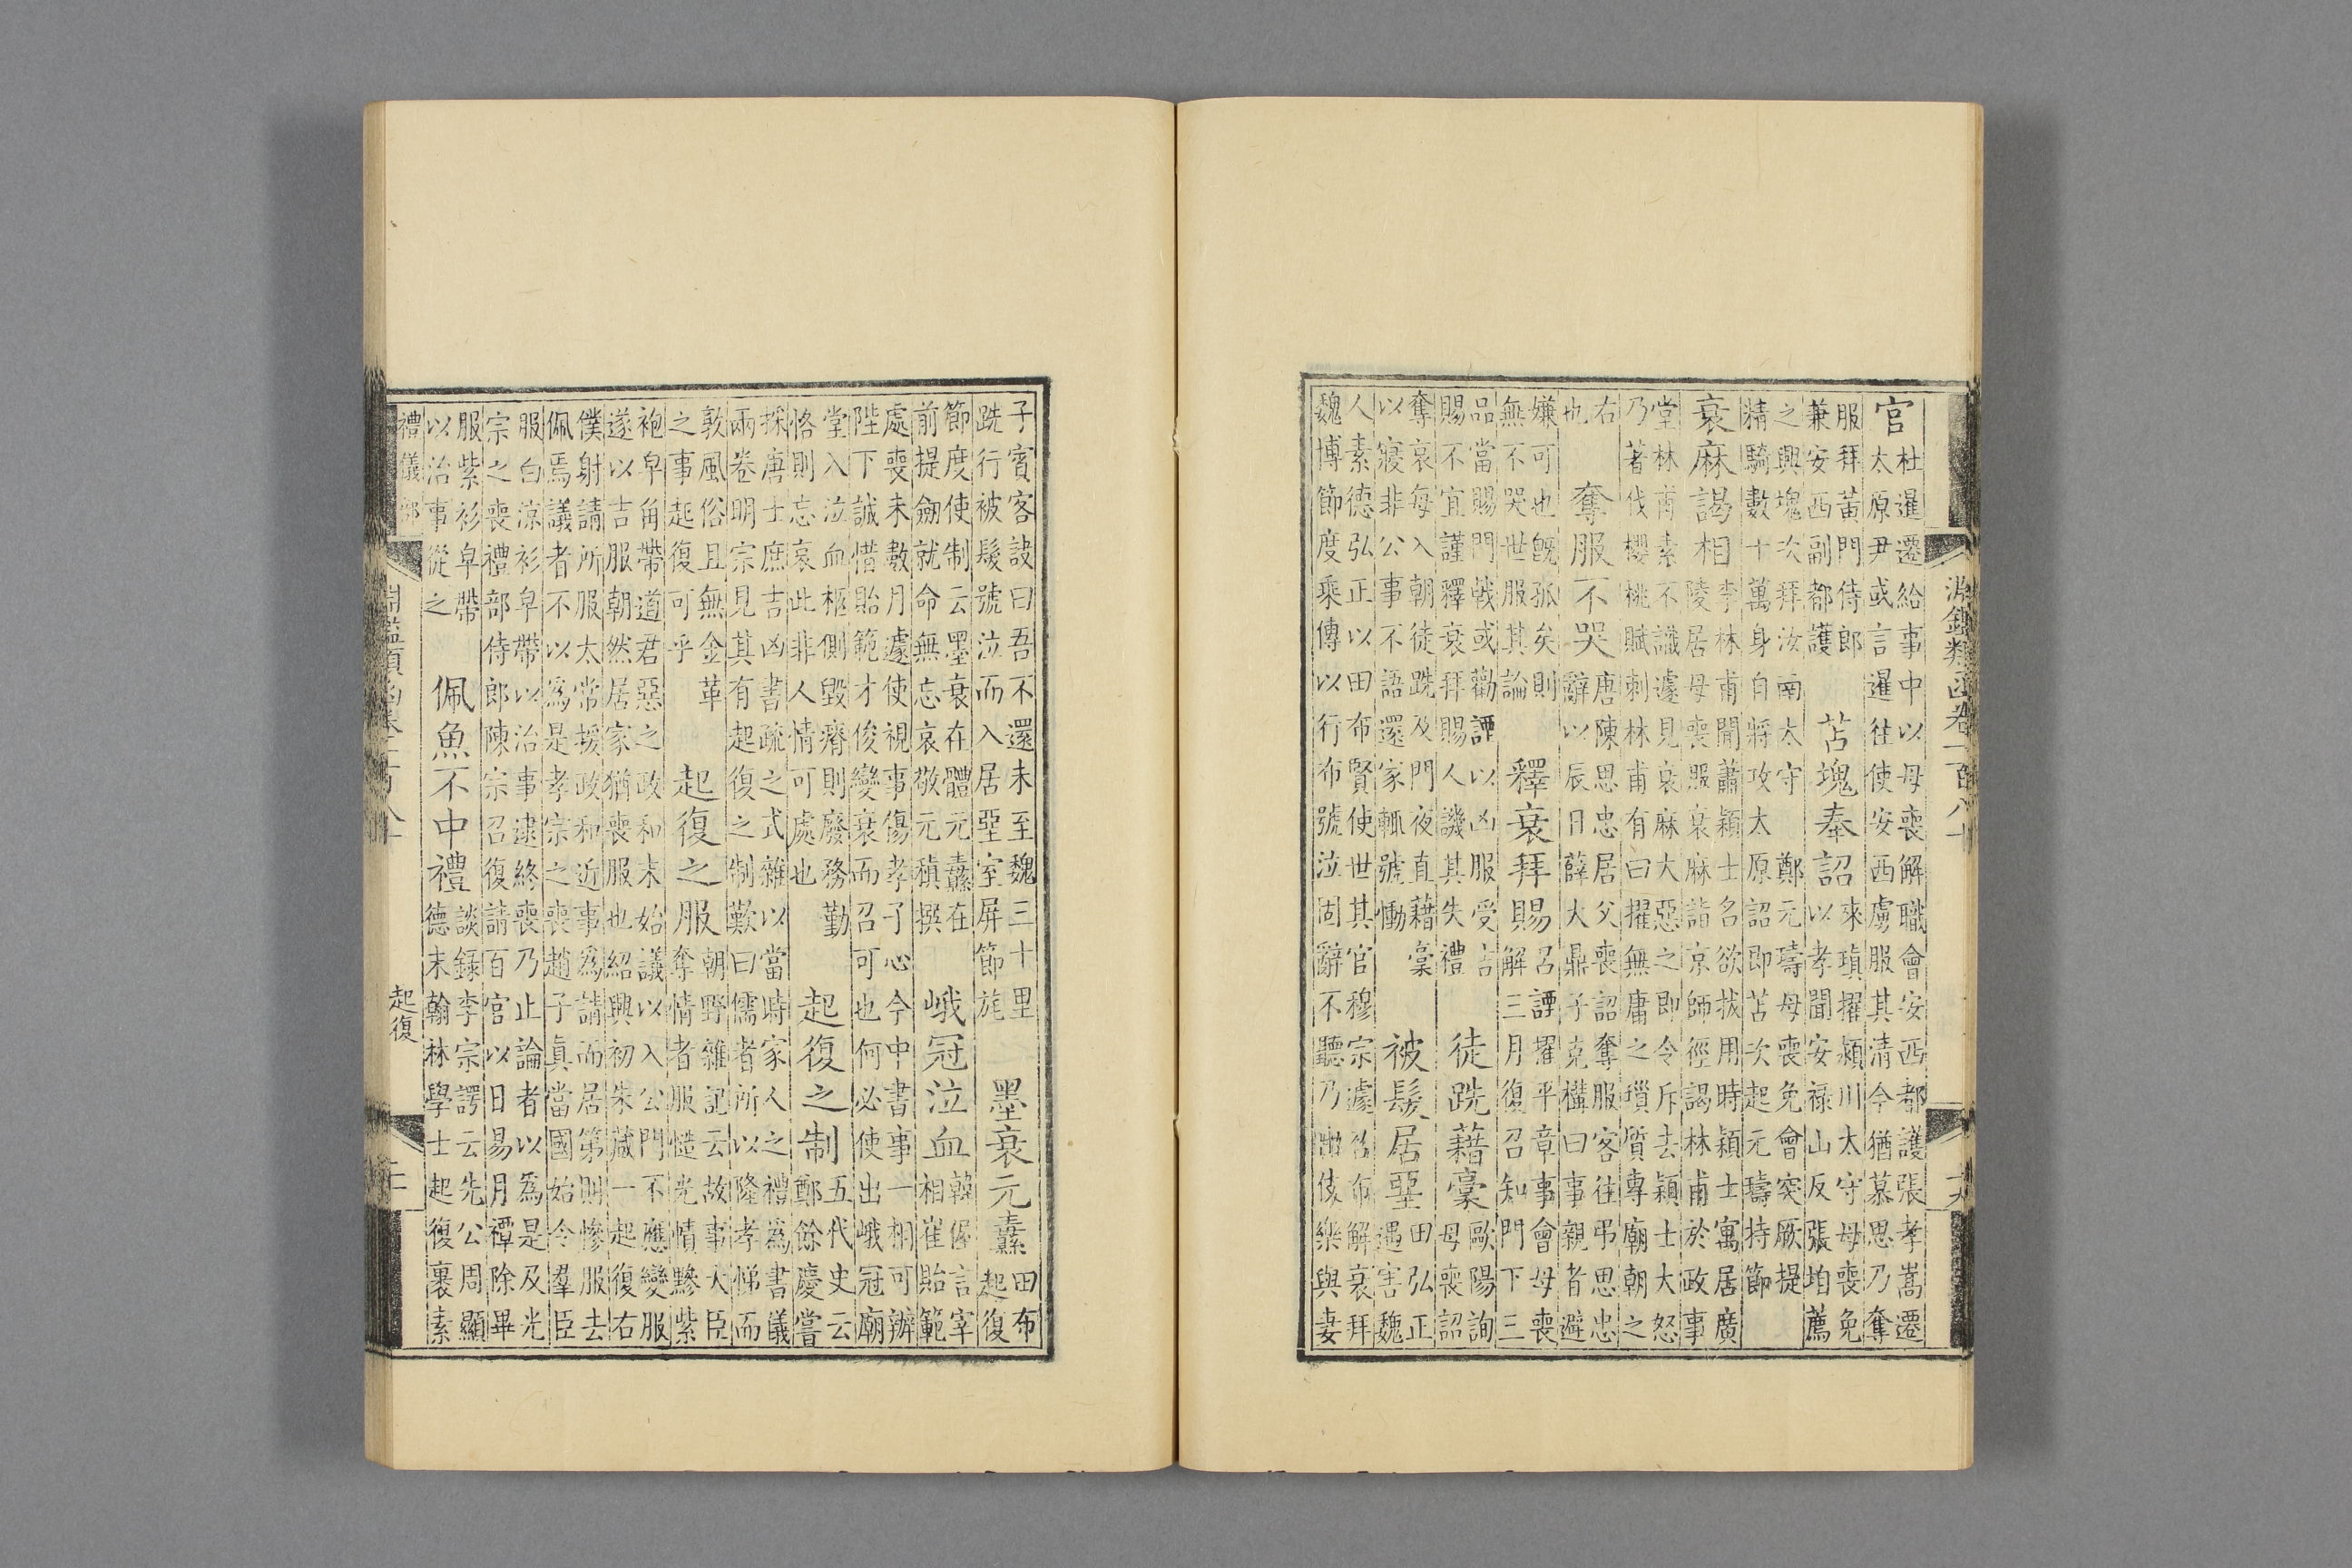 淵鑑類函卷一百八十
官
杜暹遷給事中以母喪解職會安西都護張孝嵩遷
太原尹或言暹往使安西虜服其清今猶慕思乃奪
服拜黃門侍郎
兼安西副都護
苫塊奉詔
來瑱擢潁川太守母喪免
以孝聞安祿山反張垍薦
之興塊次拜汝南太守
鄭元璹母喪免會突厥提
精騎數十萬身自將攻太原詔即苫次起元璹持節
衰麻謁相
李林甫聞蕭穎士名欲拔用時穎士寓居廣
陵居母喪照衰麻詣京師徑謁林甫於政事
堂林甫素不識遽見衰麻大惡之即令斥去穎士大怒
乃著伐櫻桃賦刺林甫有曰擢無庸之瑣質專廟朝之
右
也
奪服不哭
唐陳思忠居父喪詔奪服客往弔思忠
辭以辰日薛大鼎子克構曰事親者避
嫌可也旣孤矣則
無不哭世服其論
釋衰拜賜
呂諲擢平章事會母喪
解三月復召知門下三
品當賜門戟或勸諲以凶服受吉
賜不宜謹釋衰拜賜人譏其失禮
徒跣藉稾
歐陽詢
母喪詔
奪哀每入朝徒跣及門夜直藉稾
以寢非公事不語還家輒號慟
被髮居堊
田弘正
遇害魏
人素德弘正以田布賢使世其官穆宗遽召布解衰拜
魏博節度乘傳以行布號泣固辭不聽乃出伎樂與妻
子賓客訣曰吾不還未至魏三十里
跣行被髮號泣而入居堊室屏節旄
墨衰元纛
田布
起復
節度使制云墨衰在體元纛在
前提劒就命無忘哀敬元稹撰
峨冠泣血
韓偓言宰
相崔貽範
處喪未數月遽使視事傷孝子心今中書事一相可辦
陛下誠惜貽範才俊變衰而召可也何必使出峨冠廟
堂入泣血柩側毀瘠則廢務勤
恪則忘哀此非人情可處也
起復之制
五代史云
鄭餘慶嘗
採唐士庶吉凶書疏之式雜以當時家人之禮為書儀
兩卷明宗見其有起復之制歎曰儒者所以隆孝悌而
敦風俗且無金革
之事起復可乎
起復之服
朝野雜記云故事大臣
奪情者服慥光幘黲紫
袍皁角帶道君惡之政和末始議以入公門不應變服
遂以吉服朝然居家猶喪服也紹興初朱藏一起復右
僕射請所服太常援政和近事為請而居第則慘服去
佩焉議者不以為是孝宗之喪趙子真當國始令羣臣
服白涼衫皁帶以治事逮終喪乃止論者以為是及光
宗之喪禮部侍郎陳宗召復請百官以日易月禫除畢
服紫衫皁帶
以治事從之
佩魚不中禮
談錄李宗諤云先公周顯
德末翰林學士起復裹素
禮儀部
淵鑑類函卷一百八十
起復